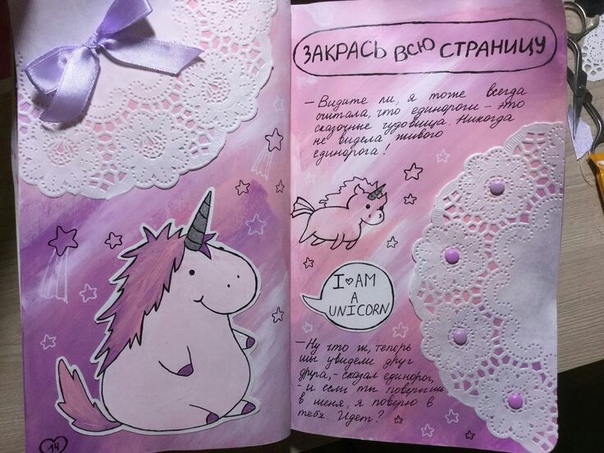 ЗАКРАСЬ ВСЮ СТРАНИЦУ
— Видите ли, я тоже всегда
считала, что единороги – это
сказочные чудовища. Никогда
не видела живого
единорога!
I ♡ AM
A
UNICORN
— Ну что ж, теперь
мы увидели друг
друга, – сказал единорог,
– и если ты поверишь
в меня, я поверю в
тебя. Идет?
14